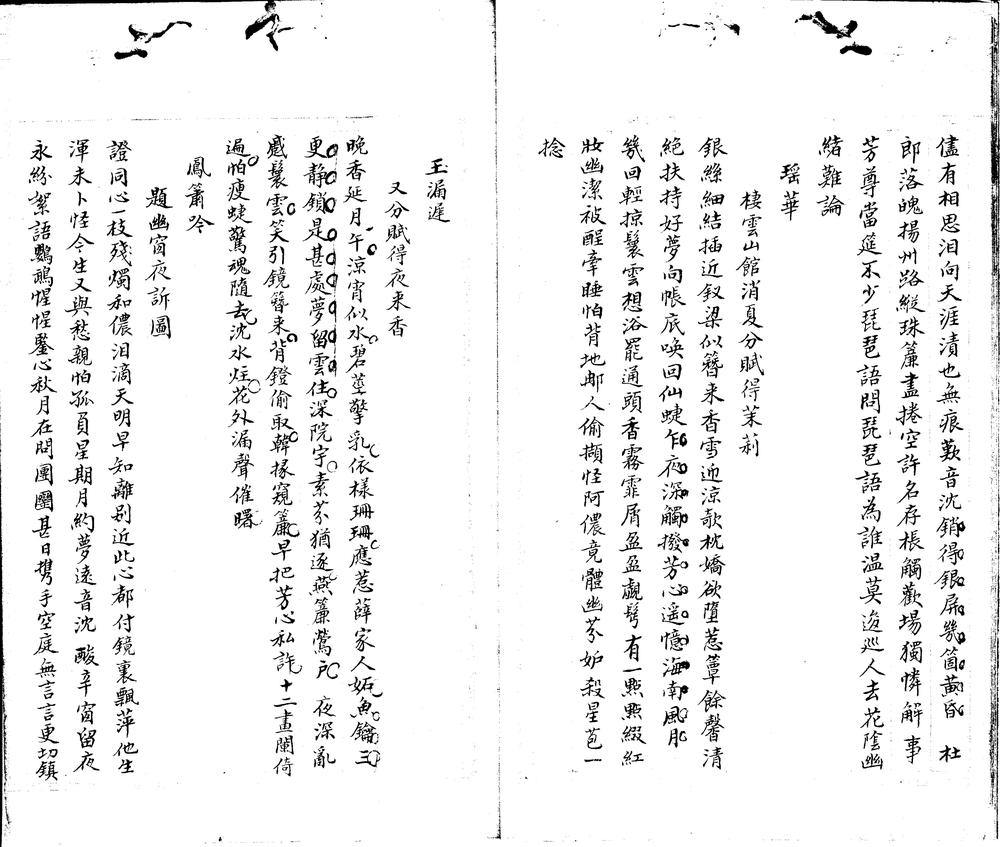 儘有相思泪向天涯漬也無痕歎音沈銷得銀屏幾箇黃昏　杜
郎落魄揚州路縱珠簾盡捲空許名存棖觸歡場獨憐解事
芳尊當筵不少琵琶語問琵琶語為誰温莫逡巡人去花陰幽
緒難論
瑶華
棲雲山館消夏分賦得茉莉
銀絲細結插近釵梁似簪来香雪迎涼欹枕嬌欲墮惹簟餘馨清
絕扶持好夢向帳底喚回仙蜨乍夜深觸撥芳心遥憶海南風月
幾回輕掠鬟雲想浴罷通頭香霧霏屑盈盈覷髩有一點點綴紅
妝幽潔被酲牽睡怕背地郎人偷擷怪阿儂竟體幽芬妒殺星苞一
捻
玉漏遲
又分賦得夜来香
晚香延月午涼宵似水碧莖擎乳依樣珊珊應惹薛家人妬魚鑰三
更静鎖是甚處夢留雲住深院宇素芬猶逐燕簾鶯戶　夜深亂
慼鬟雲笑引鏡簪来背鐙偷取韓掾窺簾早把芳心私許十二畫闌倚
遍怕瘦蜨驚魂隨去沈水炷花外漏聲催曙
鳳簫吟
題幽窗夜訴圖
證同心一枝殘燭和儂泪滴天明早知離别近此心都付鏡裏飄萍他生
渾未卜怪今生又與愁親怕孤負星期月約夢遠音沈　酸辛窗留夜
永紛絮語鸚鵡惺惺鑒心秋月在問團圞甚日携手空庭無言言更切鎮